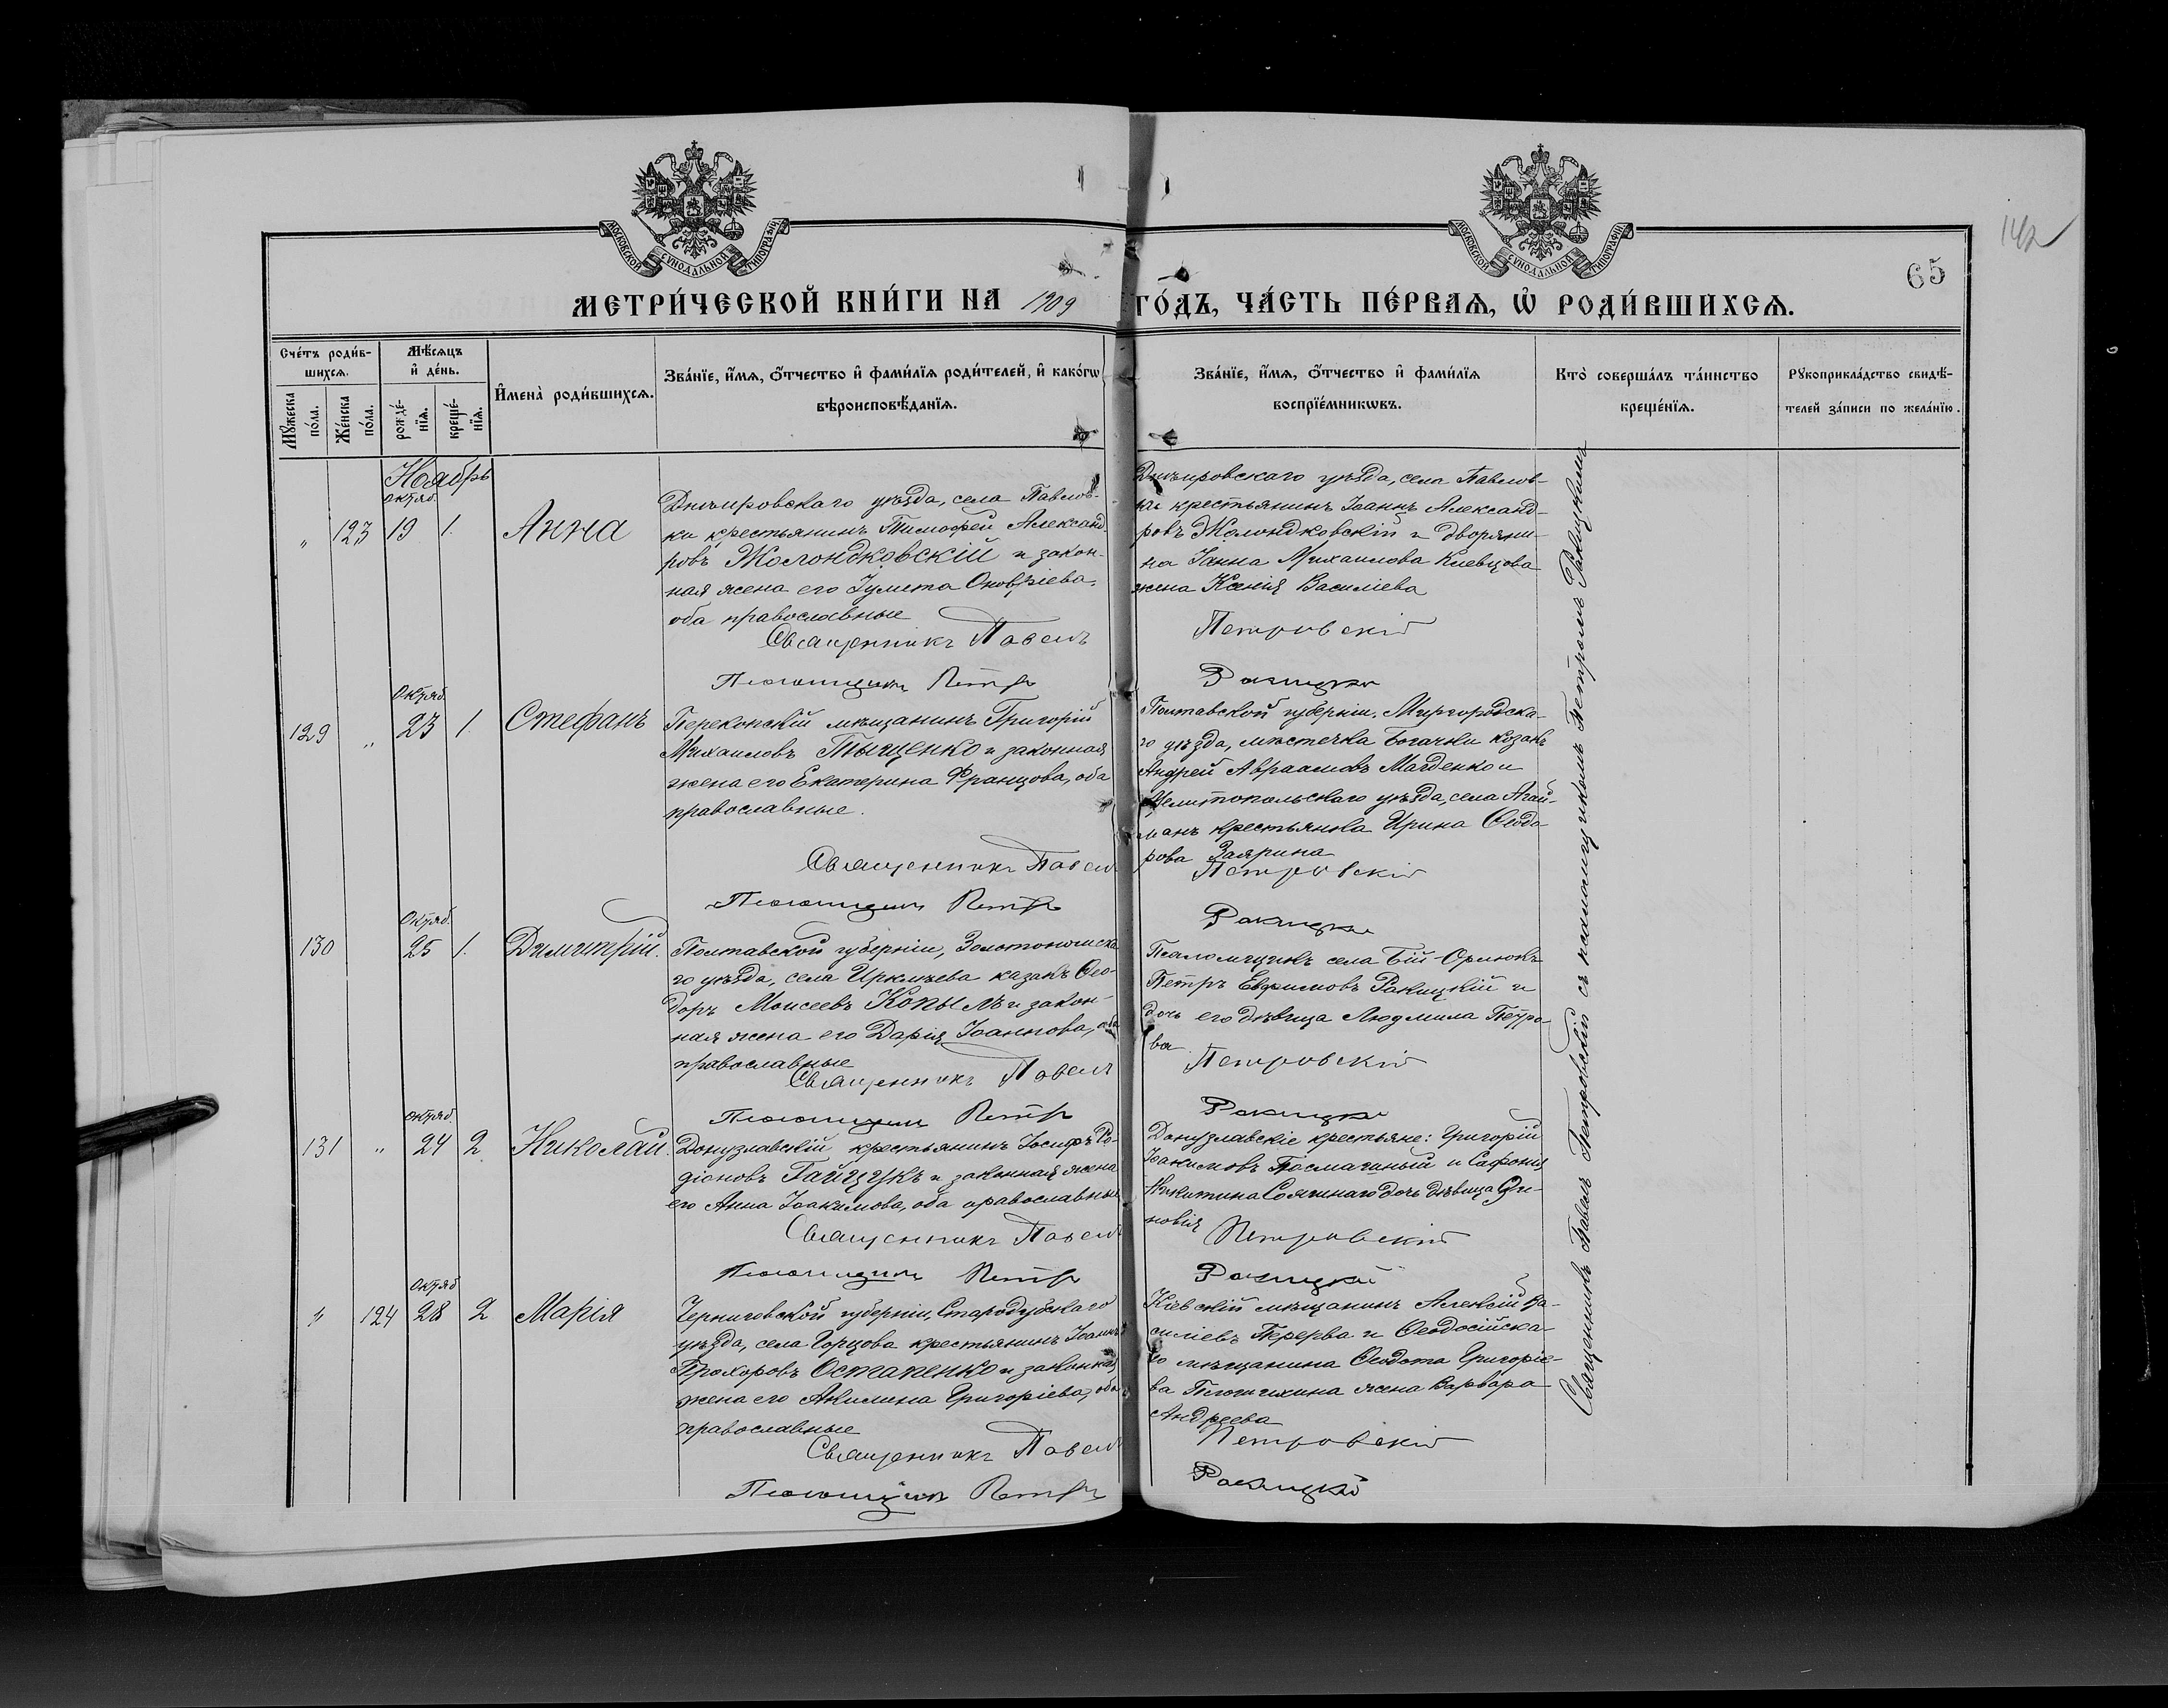 МОСКОВСКОЙ СѴНОДАЛЬНОЙ ТИПОГРАФІИ
МОСКОВСКОЙ СѴНОДАЛЬНОЙ ТИПОГРАФІИ
142
65
МЕТРИ́ЧЕСКОЙ КНИ́ГИ НА 1909 ГО́ДЪ, ЧА́СТЬ ПЕ́РВАѦ, Ѽ РОДИ́ВШИХСѦ.
Сче́тъ роди́в-
шихсѧ.
Мꙋ́жеска по́ла.
Же́нска по́ла.
Мѣ́сѧцъ
и҆ де́нь.
рожде́-нїѧ.
креще́-нїѧ.
И҆мена̀ роди́вшихсѧ.
Зва́нїе, и҆́мѧ, ѻ҆́тчество и҆ фами́лїѧ роди́телей, и҆ како́гѡ
вѣроисповѣ́данїѧ.
Зва́нїе, и҆́мѧ, ѻ҆́тчество и҆ фами́лїѧ
воспрїе́мникѡвъ.
Кто̀ соверша́лъ та́инство
креще́нїѧ.
Рꙋкоприкла́дство свидѣ́-
телей за́писи по жела́нїю.
Ноябрь
Октяб.
" 123 19 1. Анна
Днѣпровскаго уѣзда, села Павлов-
ки крестьянинъ Тимофей Александ-
ровъ Жолондковскій и закон-
ная жена его Іулита Онофріева,
оба православные
Священникъ Павелъ
Псаломщикъ Петръ
Днѣпровскаго уѣзда, села Павлов-
ки крестьянинъ Іоаннъ Александ-
ровъ Жолондковскій и дворяни-
на Михаилова Киевцова
жена Ксенія Василіева
Петровскій
Ракицкій
Октяб.
129 " 23 1. Стефанъ
Перекопскій мѣщанинъ Григорій
Михаиловъ Тыщенко и законная
жена его Екатерина Францова, оба
православные.
Священникъ Павелъ
Псаломщикъ Петръ
Полтавской губерніи, Миргородска-
го уѣзда, мѣстечка Богачки козакъ
Андрей Авраамовъ Магденко и
Мелитопольскаго уѣзда, села Агай-
манъ крестьянка Ирина Ѳеодо-
рова Заярина
Петровскій
Ракицкій
Октяб.
130 25 1. Димитрій.
Полтавской губерніи, Золотоношска-
го уѣзда, села Ирклѣева казакъ Ѳео-
доръ Моисеевъ Копылъ и закон-
ная жена его Дарія Іоаннова, оба
православные
Священникъ Павелъ
Псаломщикъ Петръ
Псаломщикъ села Бій-Орлюкъ
Петръ Евфимовъ Ракицкій и
дочь его дѣвица Людмила Петро-
ва
Петровскій
Ракицкій
Октяб.
131 " 24 2 Николай.
Донузлавскій крестьянинъ Іосифъ Ро-
діоновъ Гайчукъ и законная жена
его Анна Іоакимова, оба православные
Священникъ Павелъ
Псаломщикъ Петръ
Донузлавскіе крестьяне: Григорій
Іоакимовъ и Сафонія
Никитина дочь дѣвица Зи-
новія
Петровскій
Ракицкій
Октяб
" 124 28 2 Марія
Черниговской губерніи, Стародубскаго
уѣзда, села крестьянинъ Іоаннъ
Прохоровъ Остапенко и законная
жена его Акилина Григоріева, оба
православные
Священникъ Павелъ
Псаломщикъ Петръ
Кіевскій мѣщанинъ Алексій Ва-
силіевъ Перерва и Ѳеодосійска-
го мѣщанина Ѳеодота Григоріе-
ва жена Варвара
Андреева
Петровскій
Ракицкій
Священникъ Павелъ Петровскій съ псаломщикомъ Петромъ Ракицкимъ